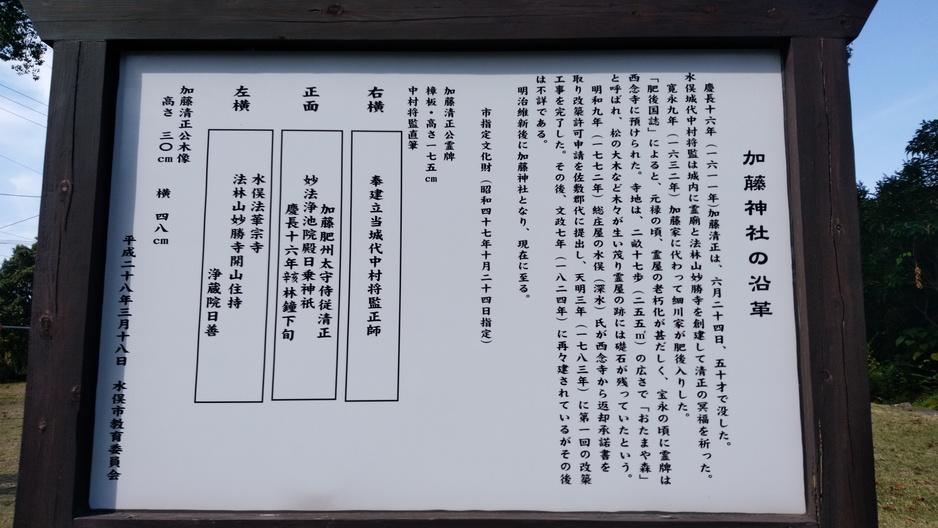 加藤神社の沿革
慶長十六年（一六一一年）加藤清正は、六月二十四日、五十才で没した。
水俣城代中村将監は城内に霊廟と法林山妙勝寺を創建して清正の冥福を祈った。
寛永九年（一六三二年）加藤家に代わって細川家が肥後入りした。
「肥後国誌」によると、元禄の頃、霊屋の老朽化が甚だしく、宝永の頃に霊牌は
西念寺に預けられた。寺地は、二畝十七歩（二五五㎡）の広さで「おたまや森」
と呼ばれ、松の大木など木々が生い茂り霊屋の跡には礎石が残っていたという。
明和九年（一七七二年）総庄屋の水俣（深水）氏が西念寺から返却承諾書を
取り改築許可申請を佐敷郡代に提出し、天明三年（一七八三年）に第一回の改築
工事を完了した。その後、文政七年（一八二四年）に再々建されているがその後
は不詳である。
明治維新後に加藤神社となり、現在に至る。
市指定文化財（昭和四十七年十月二十四日指定）
加藤清正公霊牌
樟板・高さ一七五cm
中村将監直筆
右横
奉建立当城代中村将監正師
正面
加藤肥州太守侍従清正
妙法浄池院殿日乗神祇
慶長十六年辛亥林鐘下旬
左横
水俣法華宗寺
法林山妙勝寺開山住持
浄蔵院日善
加藤清正公木像
高さ 三〇cm 横 四八cm
平成二十八年三月十八日 水俣市教育委員会